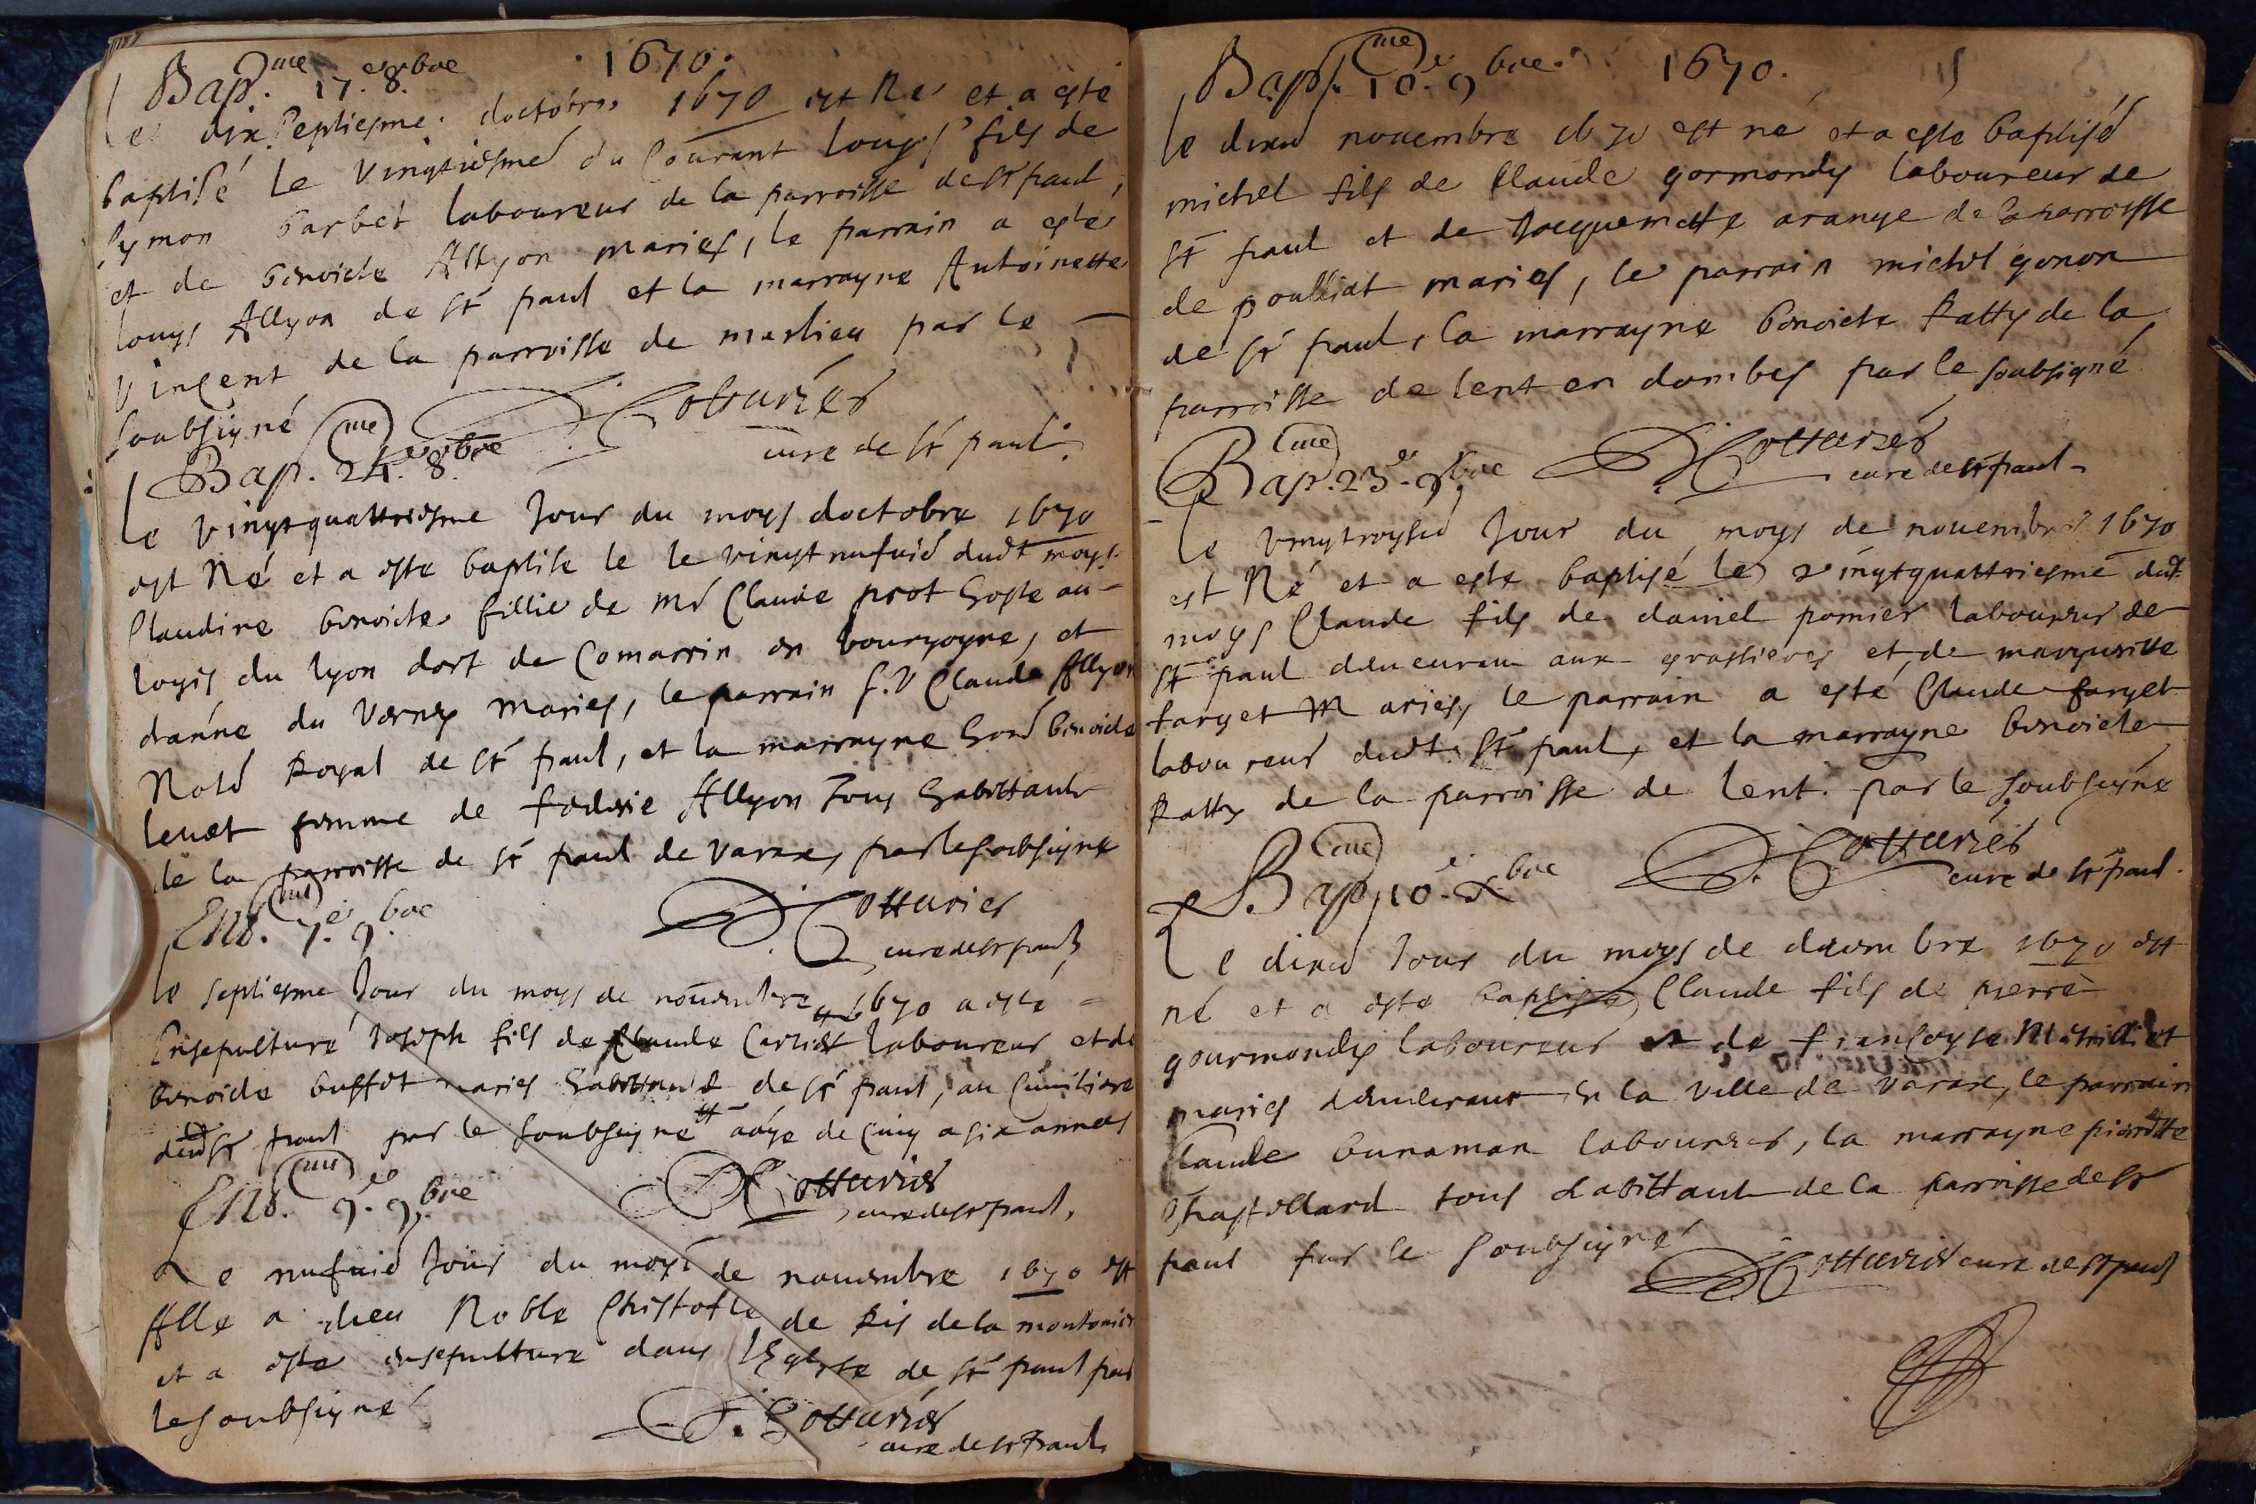 Bap.me 17.e 8.bre 1670.
Le dix septiesme doctobre 1670 est Né et a esté
baptisé le vingtiesme du Courant louys fils de
symon barbet laboureur de la parroisse de st paul,
et de benoicte Allyon mariés, le parrain a esté
louys Allyon de st paul et la marrayne Antoinette
vincent de la parroisse de marlieu par le
soubsigné Cotturier
cure de st paul.
Bap.me 24.e 8.bre
Le vingtquattriesme Jour du moys doctobre 1670
est Né et a este baptise le le vingtnufuié dudt moys
Claudine benoicte fillie de Mr Claude prot hoste au
logis du lyon dort de Comarrin en bourgogne, et
danne du vernay mariés, le parrain s.r Claude Allyon
Notré Royal de st paul, et la marrayne hond benoicte
levet femme de Allyon Tous habittants
de la parroisse de st paul de varax, par le soubsigne
Cotturier
cure de st paul
Ent.me 7.e 9.bre
le septiesme Jour du moys de nouembre 1670 a este
Ensepulturé Joseph fils de Claude Carlet laboureur et de
benoicte buffet maries habittants de st paul, au Cimitiere
dudt st paul par le soubsigne aagé de Cinq a six annees
Cotturier
cure de st paul,
Ent.me 9.e 9.bre
Le nufuié Jour du moys de nouembre 1670 est
Alle a dieu Noble Christofle de Ris de la
et a este ensepulture dans lEglise de st paul par
le soubsigné
Cotturier
cure de st Paul
Bapt.me 10.e 9.bre 1670.
le dixié nouembre 1670 est né et a este baptisé
michel fils de Claude gormondy laboureur de
st paul et de Jacquemette arange de la parroisse
de poulliat mariés, le parrain michel gonon
de st paul, la marrayne benoicte Ratty de la
parroisse de lent en dombes par le soubsigné
Cotturier
cure de st paul
Bap.me 23.e 9.bre
le vingtroysié Jour du moys de nouembre 1670
est Né et a este baptisé le vingtquattriesme dudt
moys Claude fils de daniel pomier laboureur de
st paul demeurant aux et de margueritte
farget Mariés, le parrain a esté Claude farget
laboureur dudt st paul, et la marrayne benoicte
Ratty de la parroisse de lent. par le soubsigné
Cotturier
cure de st paul.
Bap.me 10.e X.bre
Le dixié Jour du moys de decembre 1670 est
né et a este baptisé Claude fils de pierre
gourmondy laboureur et de francoyse
maries demeurant En la ville de varax, le parrain
Claude bunaman laboureur, la marrayne pierrette
Chastellard tous habittants de la parroisse de st
paul par le soubsigné
Cotturier cure de st paul